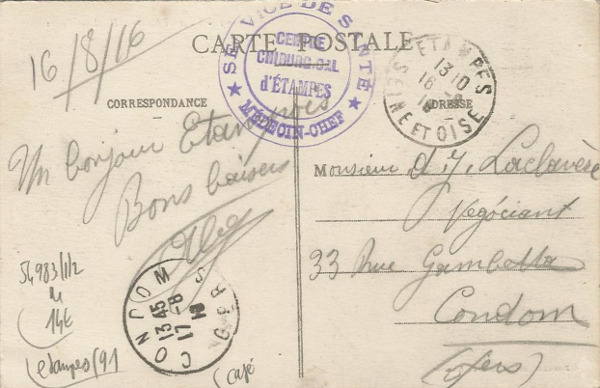 16/8/16
CARTE POSTALE
SERVICE DE SANTÉ
CENTRE
CHIRURGICAL
d'ÉTAMPES
★ MÉDECIN-CHEF ★
ETAMPES
13 10
16 -8
SEINE ET OISE
CORRESPONDANCE
ADRESSE
Un bonjour Etampois
Bons baisers
Monsieur A. J. Laclavère
Négociant
33 Rue Gambetta
Condom
(Gers)
CONDOM
13 45
17 -8
16
GERS
54983/1/2
14€
etampes (91
(café